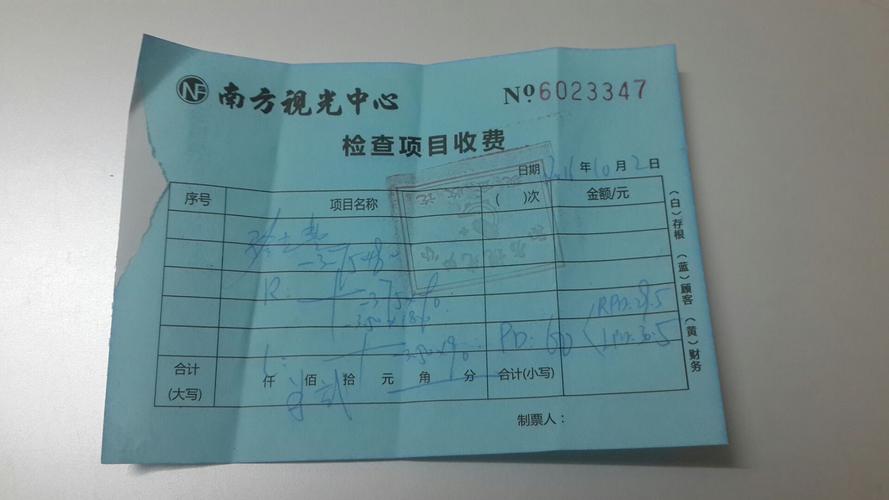 NF 南方视光中心 Nº 6023347
检查项目收费
日期 2016 年 10 月 2 日
序号 项目名称 ( )次 金额/元
R: -3.75
-3.75
L: -3.50 PD: 60 RPD: 29.5
LPD: 30.5
合计 仟 佰 拾 元 角 分 合计(小写)
(大写)
制票人：
(白)存根 (蓝)顾客 (黄)财务